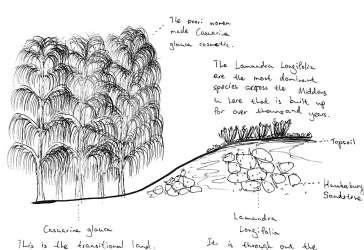 The poori women
made Casuarina
glauca cosmetic.
The Lamandra Longifolia
are the most dominant
species across the Middens
in here that is built up
for over thousand years.
Topsoil
Hawkesbury
Sandstone
Casuarina glauca
This is the transitional land.
Lamandra
Longifolia
It is through out the